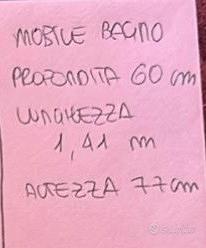 MOBILE BAGNO
PROFONDITA 60 cm
LUNGHEZZA
1,41 m
ALTEZZA 77 cm